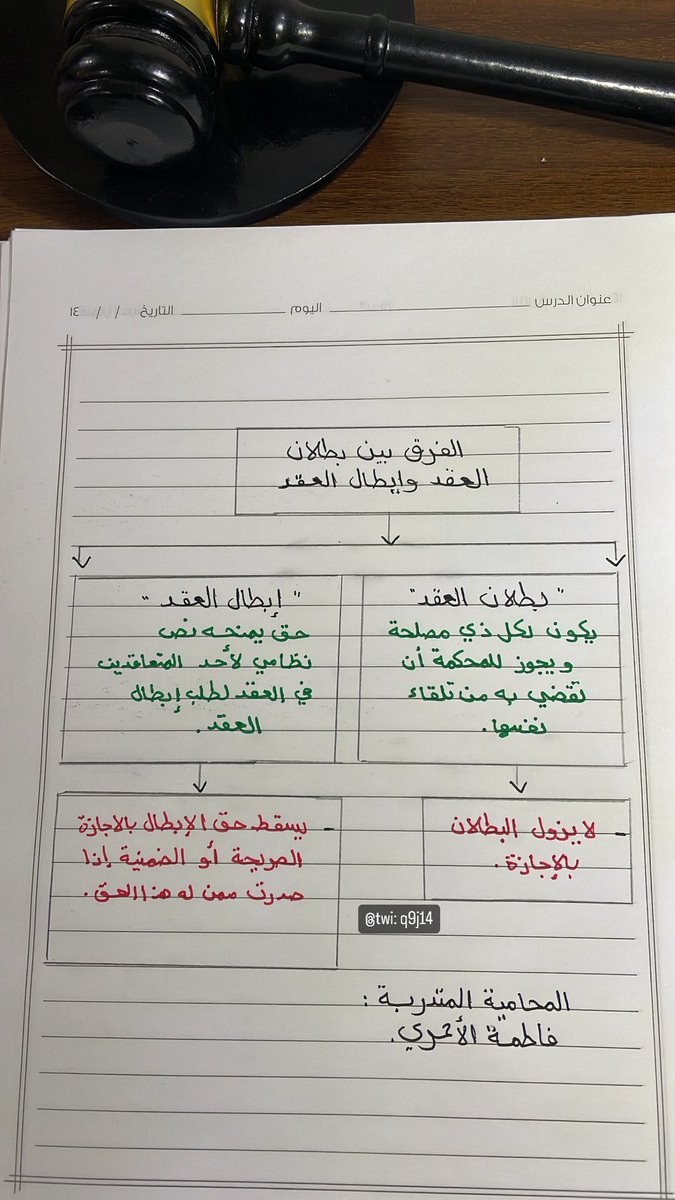 عنوان الدرس اليوم التاريخ / / ١٤
الفرق بين بطلان
العقد وإبطال العقد
"بطلان العقد"
يكون لكل ذي مصلحة
ويجوز للمحكمة أن
تقضي به من تلقاء
نفسها.
لا يزول البطلان -
بالإجازة.
"إبطال العقد"
حق يمنحه نص
نظامي لأحد المتعاقدين
في العقد لطلب إبطال
العقد.
- يسقط حق الإبطال بالاجازة
الصريحة أو الضمنية إذا
صدرت ممن له هذا الحق.
@twi: q9j14
المحامية المتدربة :
فاطمة الأحمري.